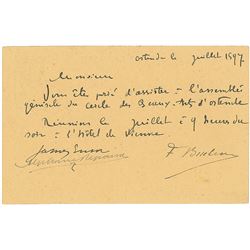 ostende le juillet 1897
Monsieur
Vous êtes prié d'assister à l'assemblée
générale du cercle des Beaux-Arts d'ostende
Réunions le juillet à 9 heures du
soir à l'hôtel de Vienne.
James Ensor